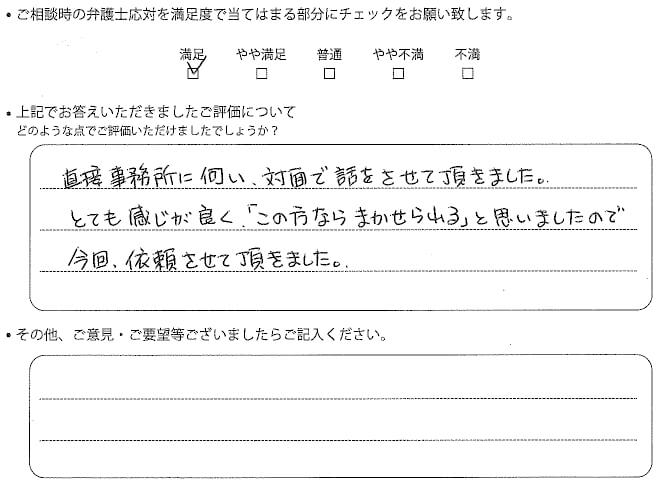 • ご相談時の弁護士応対を満足度で当てはまる部分にチェックをお願い致します。
満足 やや満足 普通 やや不満 不満
☑ □ □ □ □
• 上記でお答えいただきましたご評価について
どのような点でご評価いただけましたでしょうか？
直接事務所に伺い、対面で話をさせて頂きました。
とても感じが良く、「この方ならまかせられる」と思いましたので
今回、依頼させて頂きました。
• その他、ご意見・ご要望等ございましたらご記入ください。